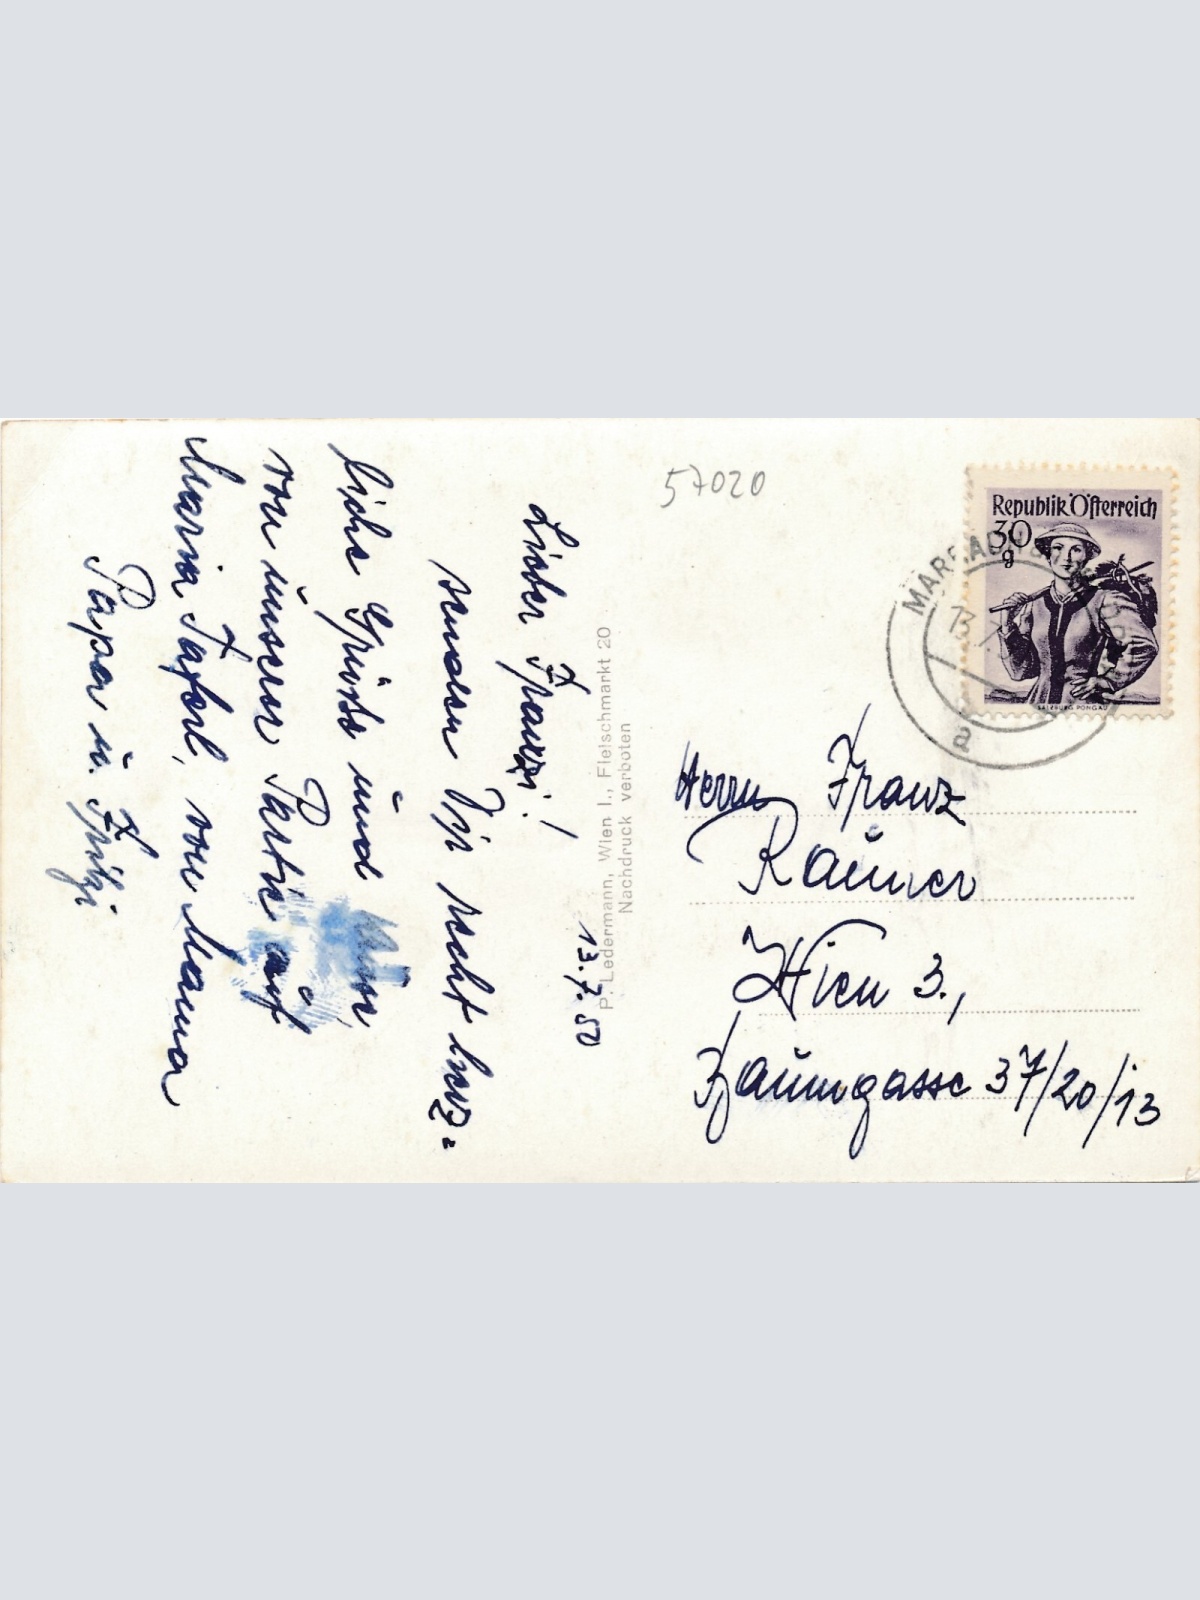 57020
Republik Österreich
30
g
SALZBURG PONGAU
MARBACH
13.7.
a
Herrn Franz
Rauner
Wien 3.,
Baumgasse 37/20/13
P. Ledermann, Wien I., Fleischmarkt 20
Nachdruck verboten
13.7.50
Lieber Franzi!
senden Dir recht herz=
liche Grüße und
von unserer Partie auf
Maria Taferl, von Mama
Papa u. Fritzi